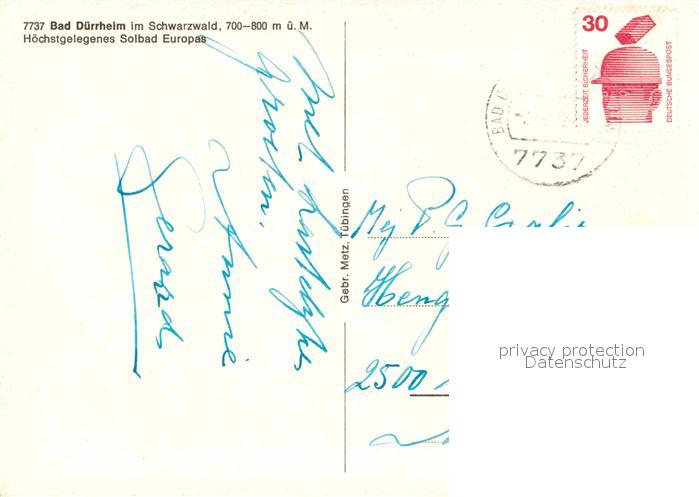 7737 Bad Dürrheim im Schwarzwald, 700–800 m ü. M.
Höchstgelegenes Solbad Europas
Met hartelijke
groeten,
Annie
Gerard.
Gebr. Metz, Tübingen
30
JEDERZEIT SICHERHEIT
DEUTSCHE BUNDESPOST
BAD
7737
Mej P. C.
Heng
2500
privacy protection
Datenschutz